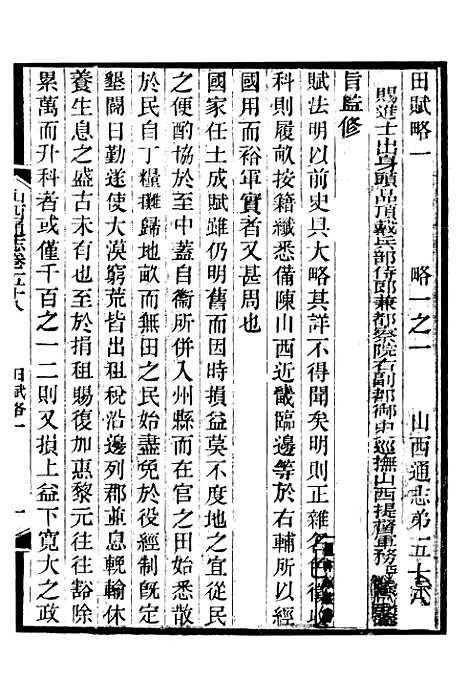 田賦略一　略一之一　山西通志第五十八
賜進士出身頭品頂戴兵部侍郎兼都察院右副都御史巡撫山西提督軍務
旨監修
賦法明以前史具大略其詳不得聞矣明賦正雜名色
科則履畝按籍纖悉備陳山西近畿臨邊等於右輔所以經
國用而裕軍實者又甚周也
國家任土成賦雖仍明舊然而因時損益莫不度地宜從民
之便酌協於至中蓋自衞所併入州縣而在官之田始悉散
於民自丁糧攤歸地畝而無田之民始盡免於役經制旣定
墾闢日勤遂使大漠窮荒皆出租稅沿邊列郡並息輓輸休
養生息之盛古未有也至於捐租賜復加惠黎元往往豁除
累萬而升科者或僅千百之一二則又損上益下寬大之政
山西通志卷五十八　田賦略一　一